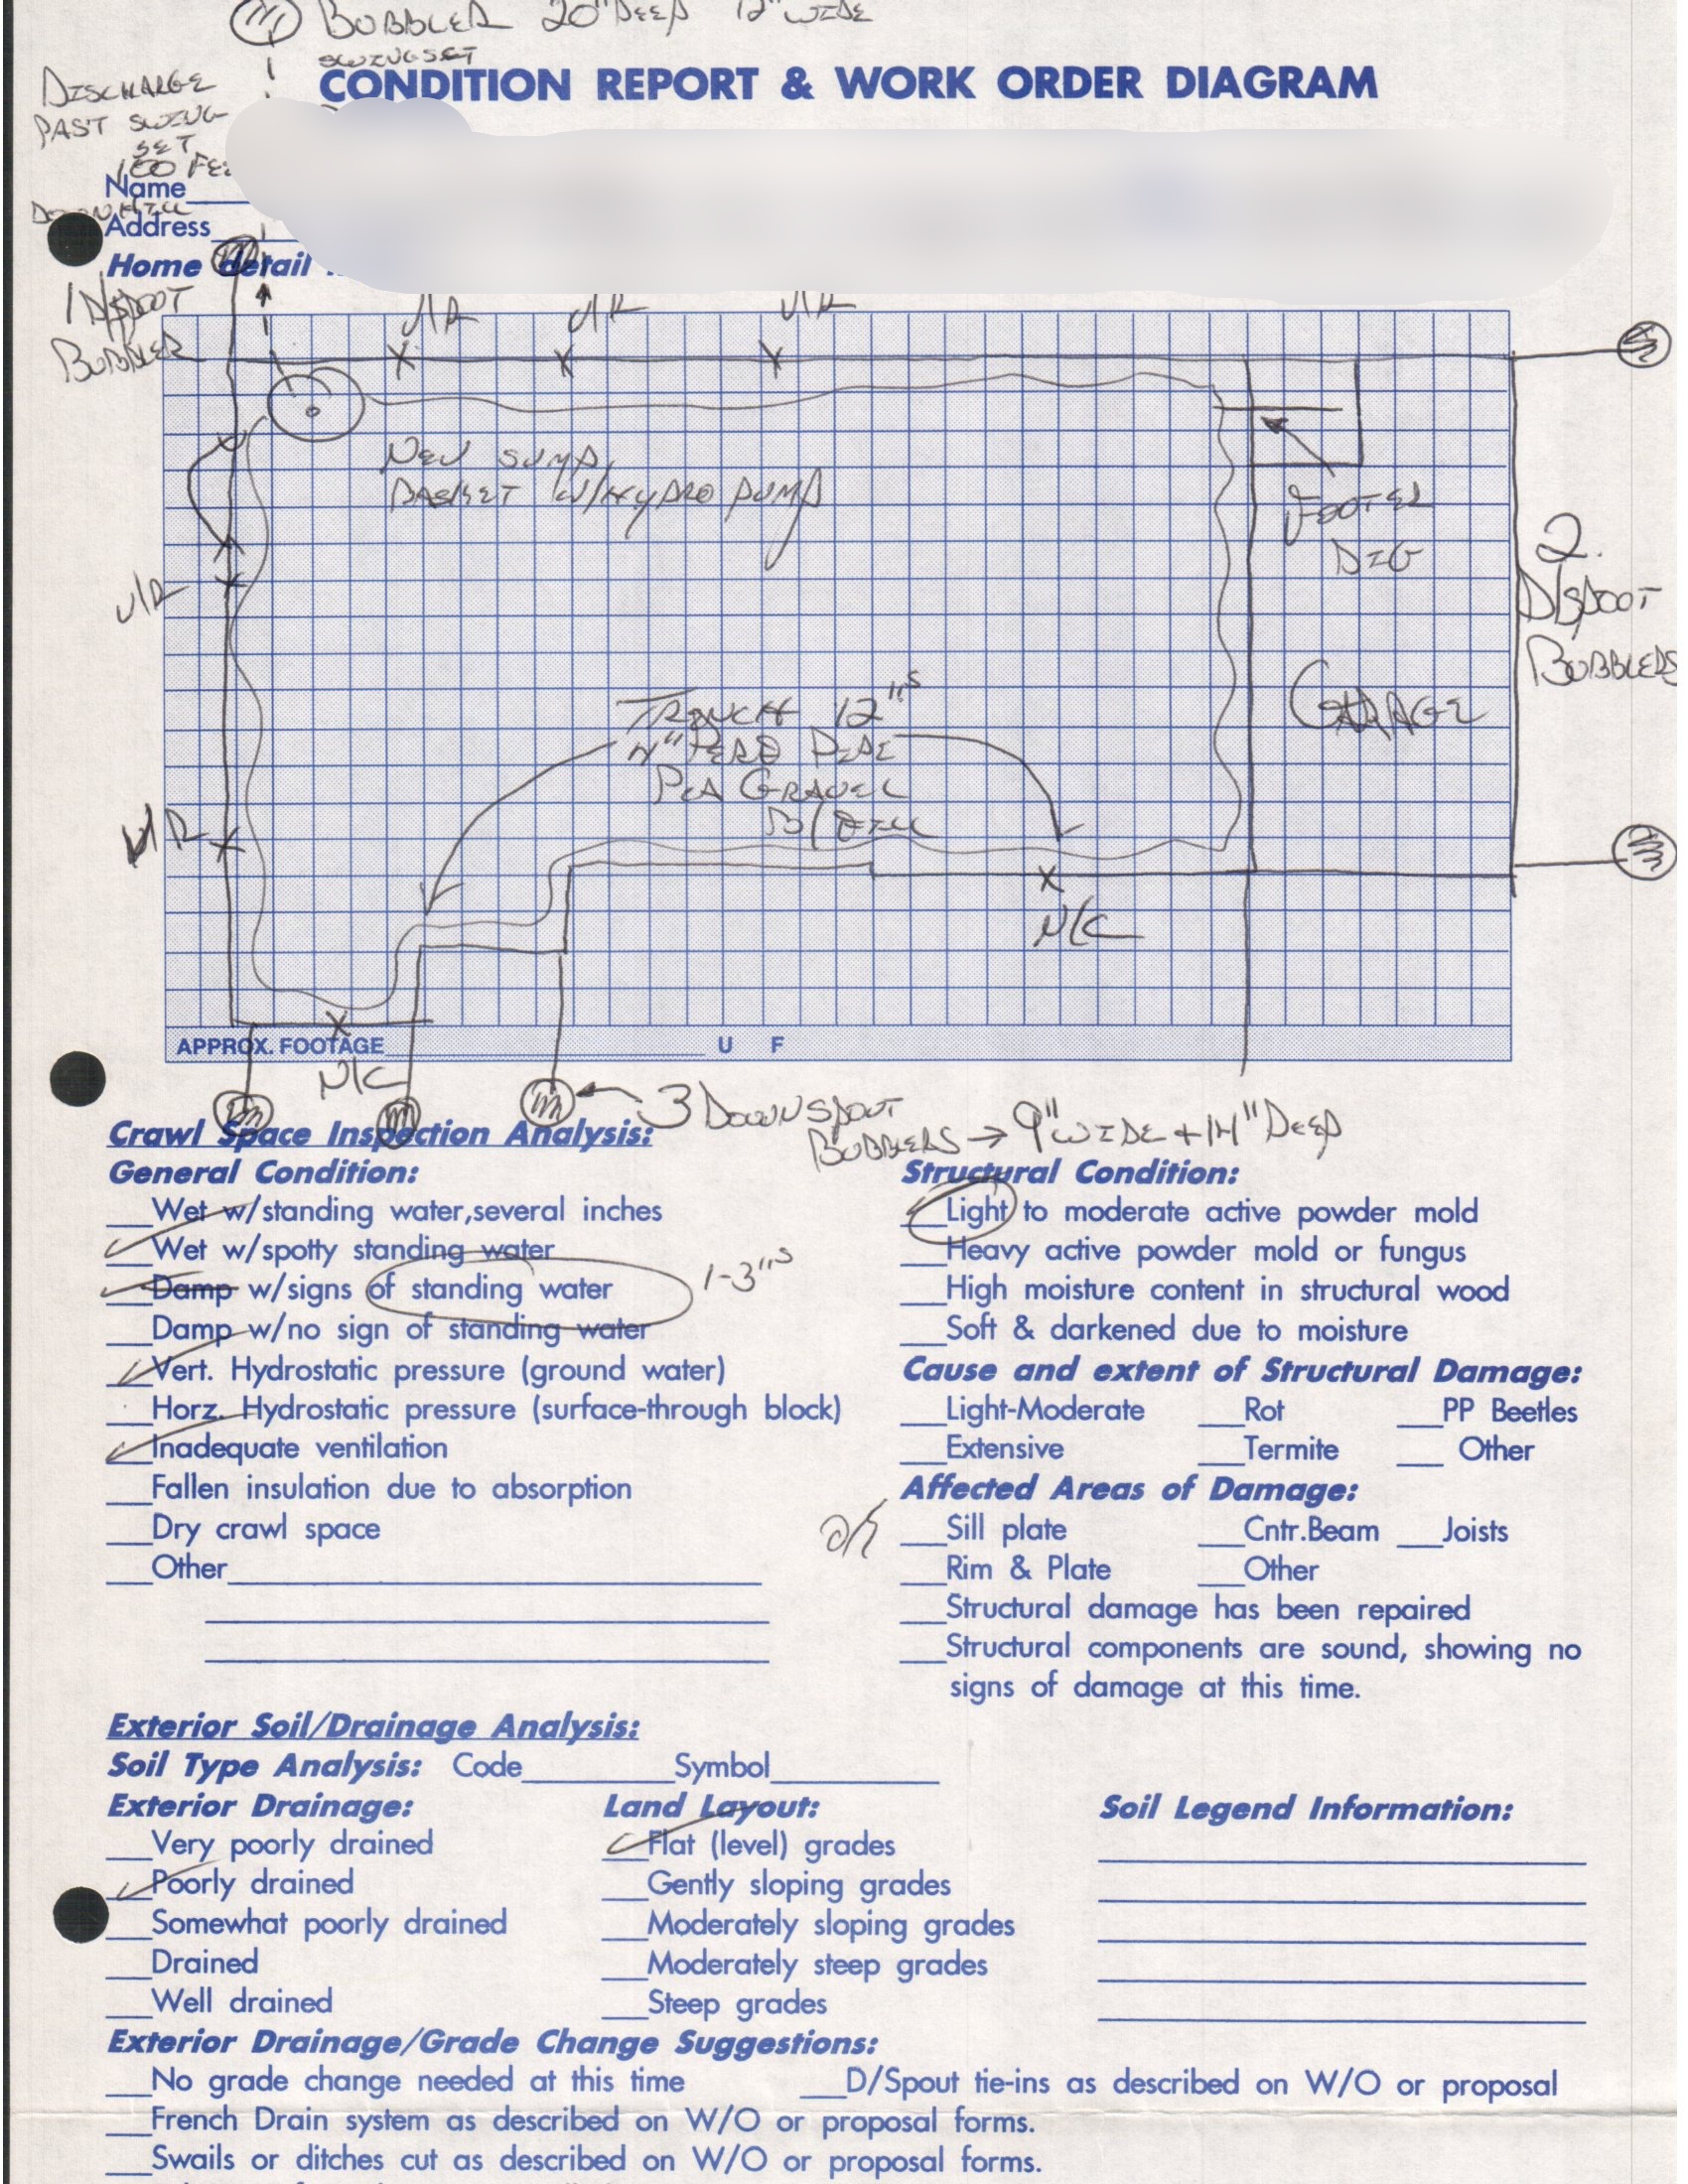 BUBBLER 20" DEEP 12" WIDE
SWINGSET
CONDITION REPORT & WORK ORDER DIAGRAM
DISCHARGE
PAST SWING
SET
100 FE
DOWNHILL
Name
Address
Home detail
1 D/SPOOT
BUBBLER
V/R V/R V/R
NEW SUMP
BASKET W/HYDRO PUMP
FOOTER
DIG
2.
D/SPOOT
BUBBLERS
V/R
GARAGE
TRENCH 12"s
4" PERF PIPE
PEA GRAVEL
B/FILL
V/R
N/C
APPROX. FOOTAGE U F
N/C
3 DOWNSPOUT
BUBBLERS → 9" WIDE + 14" DEEP
Crawl Space Inspection Analysis:
General Condition:
Wet w/standing water,several inches
Wet w/spotty standing water
Damp w/signs of standing water 1-3"s
Damp w/no sign of standing water
Vert. Hydrostatic pressure (ground water)
Horz. Hydrostatic pressure (surface-through block)
Inadequate ventilation
Fallen insulation due to absorption
Dry crawl space
Other
Structural Condition:
Light to moderate active powder mold
Heavy active powder mold or fungus
High moisture content in structural wood
Soft & darkened due to moisture
Cause and extent of Structural Damage:
Light-Moderate Rot PP Beetles
Extensive Termite Other
Affected Areas of Damage:
OK
Sill plate Cntr.Beam Joists
Rim & Plate Other
Structural damage has been repaired
Structural components are sound, showing no
signs of damage at this time.
Exterior Soil/Drainage Analysis:
Soil Type Analysis: Code Symbol
Exterior Drainage:
Very poorly drained
Poorly drained
Somewhat poorly drained
Drained
Well drained
Land Layout:
Flat (level) grades
Gently sloping grades
Moderately sloping grades
Moderately steep grades
Steep grades
Soil Legend Information:
Exterior Drainage/Grade Change Suggestions:
No grade change needed at this time D/Spout tie-ins as described on W/O or proposal
French Drain system as described on W/O or proposal forms.
Swails or ditches cut as described on W/O or proposal forms.